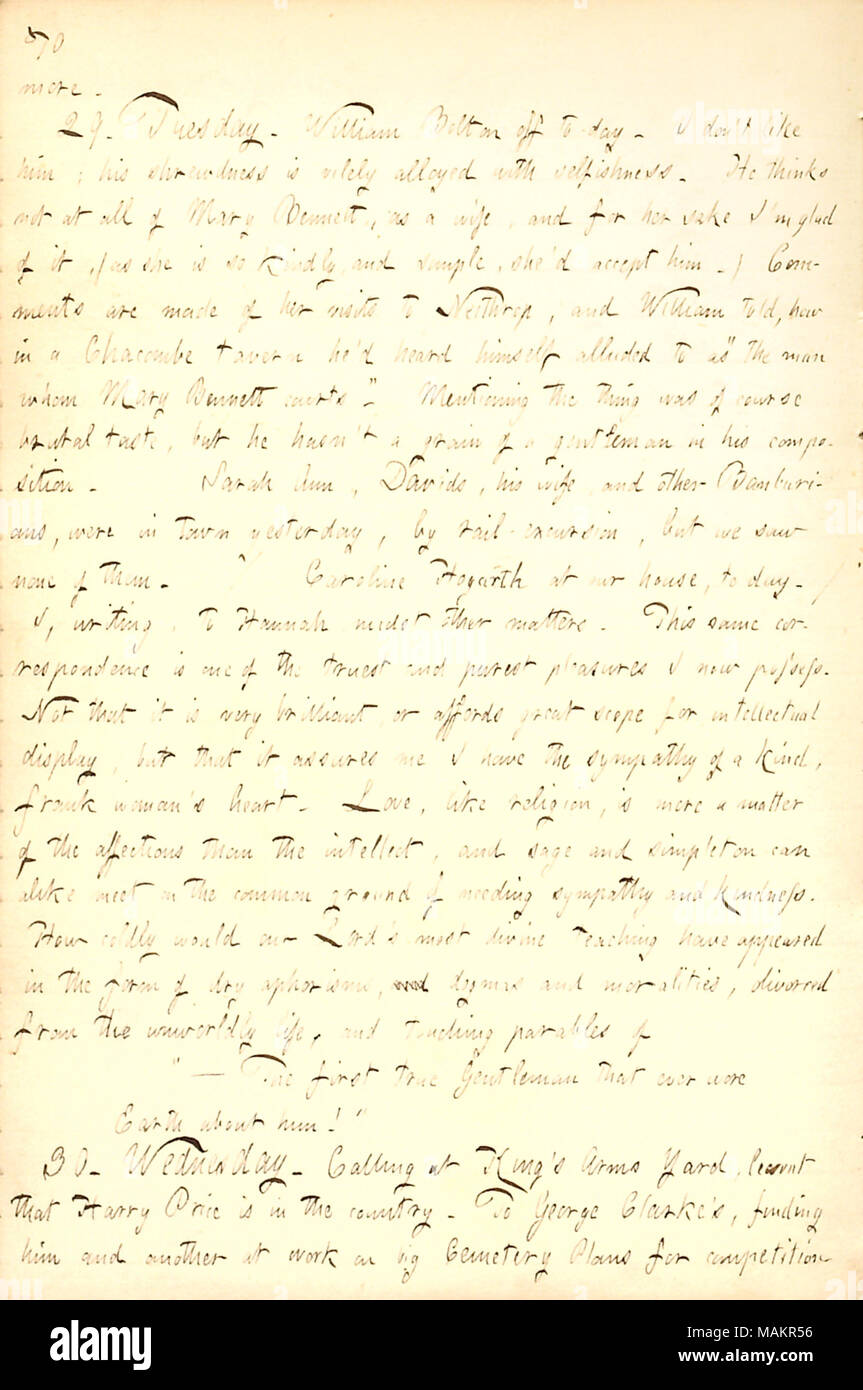 570
more.
29. Tuesday. William Bolton off to-day. I don't like
him; his shrewdness is vilely alloyed with selfishness. He thinks
not at all of Mary Bennett, as a wife, and for her sake I'm glad
of it, (as she is so kindly, and simple, she'd accept him.) Com-
ments are made of her visits to Neithrop, and William told, how
in a Chacombe tavern he'd heard himself alluded to as "the man
whom Mary Bennett courts". Mentioning the thing was of course
brutal taste, but he hasn't a grain of a gentleman in his compo-
sition. Sarah Ann, Davids, his wife, and other Banburi-
ans, were in town yesterday, by rail-excursion, but we saw
none of them. / Caroline Hogarth at our house, to day. /
I, writing, to Hannah midst other matters. This same cor-
respondence is one of the truest and purest pleasures I now possess.
Not that it is very brilliant, or affords great scope for intellectual
display, but that it assures me I have the sympathy of a kind,
frank woman's heart. Love, like religion, is more a matter
of the affections than the intellect, and sage and simpleton can
alike meet on the common ground of needing sympathy and kindness.
How coldly would our Lord's most divine teaching have appeared
in the form of dry aphorisms, and dogmas and moralities, divorced
from the unworldly life, and touching parables of
"— The first true Gentleman that ever wore
Earth about him!"
30. Wednesday. Calling at King's Arms Yard, learnt
that Harry Price is in the country. To George Clarke's, finding
him and another at work on big Cemetery Plans for competition
alamy
Image ID: MAKR56
www.alamy.com